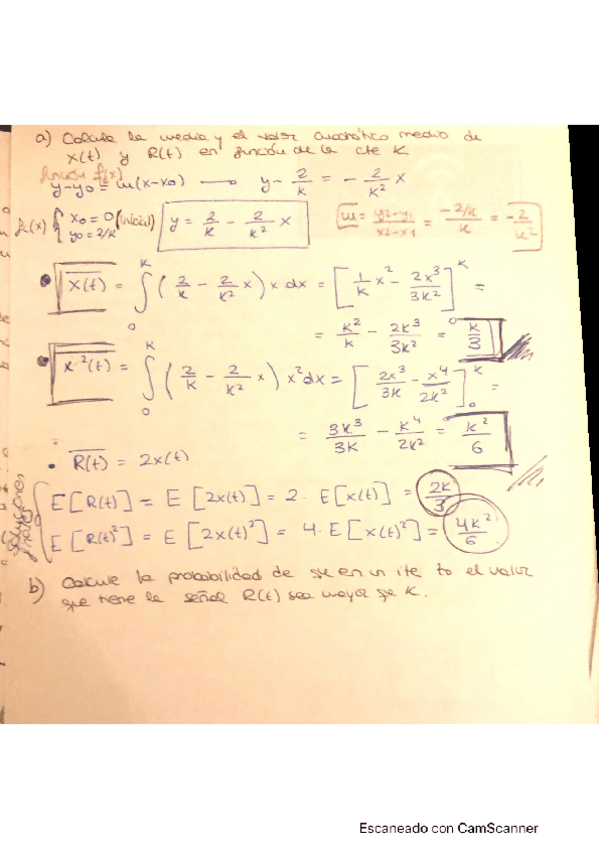 a) Calcule la media y el valor cuadrático medio de
x(t) y R(t) en función de la cte K.
función fx(x)
y-y0 = m(x-x0) → y - 2/k = - 2/k² x
fx(x) { x0 = 0 (inicial) y0 = 2/k y = 2/k - 2/k² x m = y2-y1/x2-x1 = -2/k/k = -2/k²
• x(t) = ∫₀ᴷ (2/k - 2/k² x) x dx = [1/k x² - 2x³/3k²]₀ᴷ =
= k²/k - 2k³/3k² = k/3
• x²(t) = ∫₀ᴷ (2/k - 2/k² x) x² dx = [2x³/3k - x⁴/2k²]₀ᴷ =
= 3k³/3k - k⁴/2k² = k²/6
• R(t) = 2x(t)
E[R(t)] = E[2x(t)] = 2 · E[x(t)] = 2k/3
E[R(t)²] = E[2x(t)²] = 4 · E[x(t)²] = 4k²/6
b) Calcule la probabilidad de que en un ite to el valor
que tiene la señal R(t) sea mayor que K.
Escaneado con CamScanner